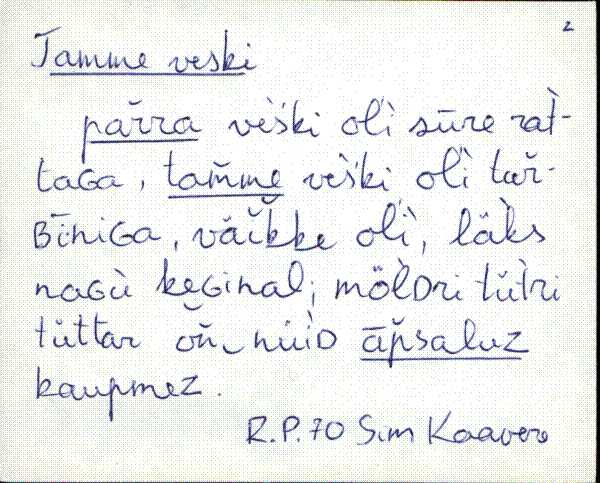 2
Tamme veski
pär̆ra vès̆ki olì sūre rat̀-
taGa, tam̆me vès̆ki olì tur̆-
Bīniga, väĭkke olì, läks
naGù keGinal; möl̀Dri tŭt̀ri
tŭttar oñ, nüiD āp̆saluz
kaupmez.
R.P. 70 Sim Kaavere